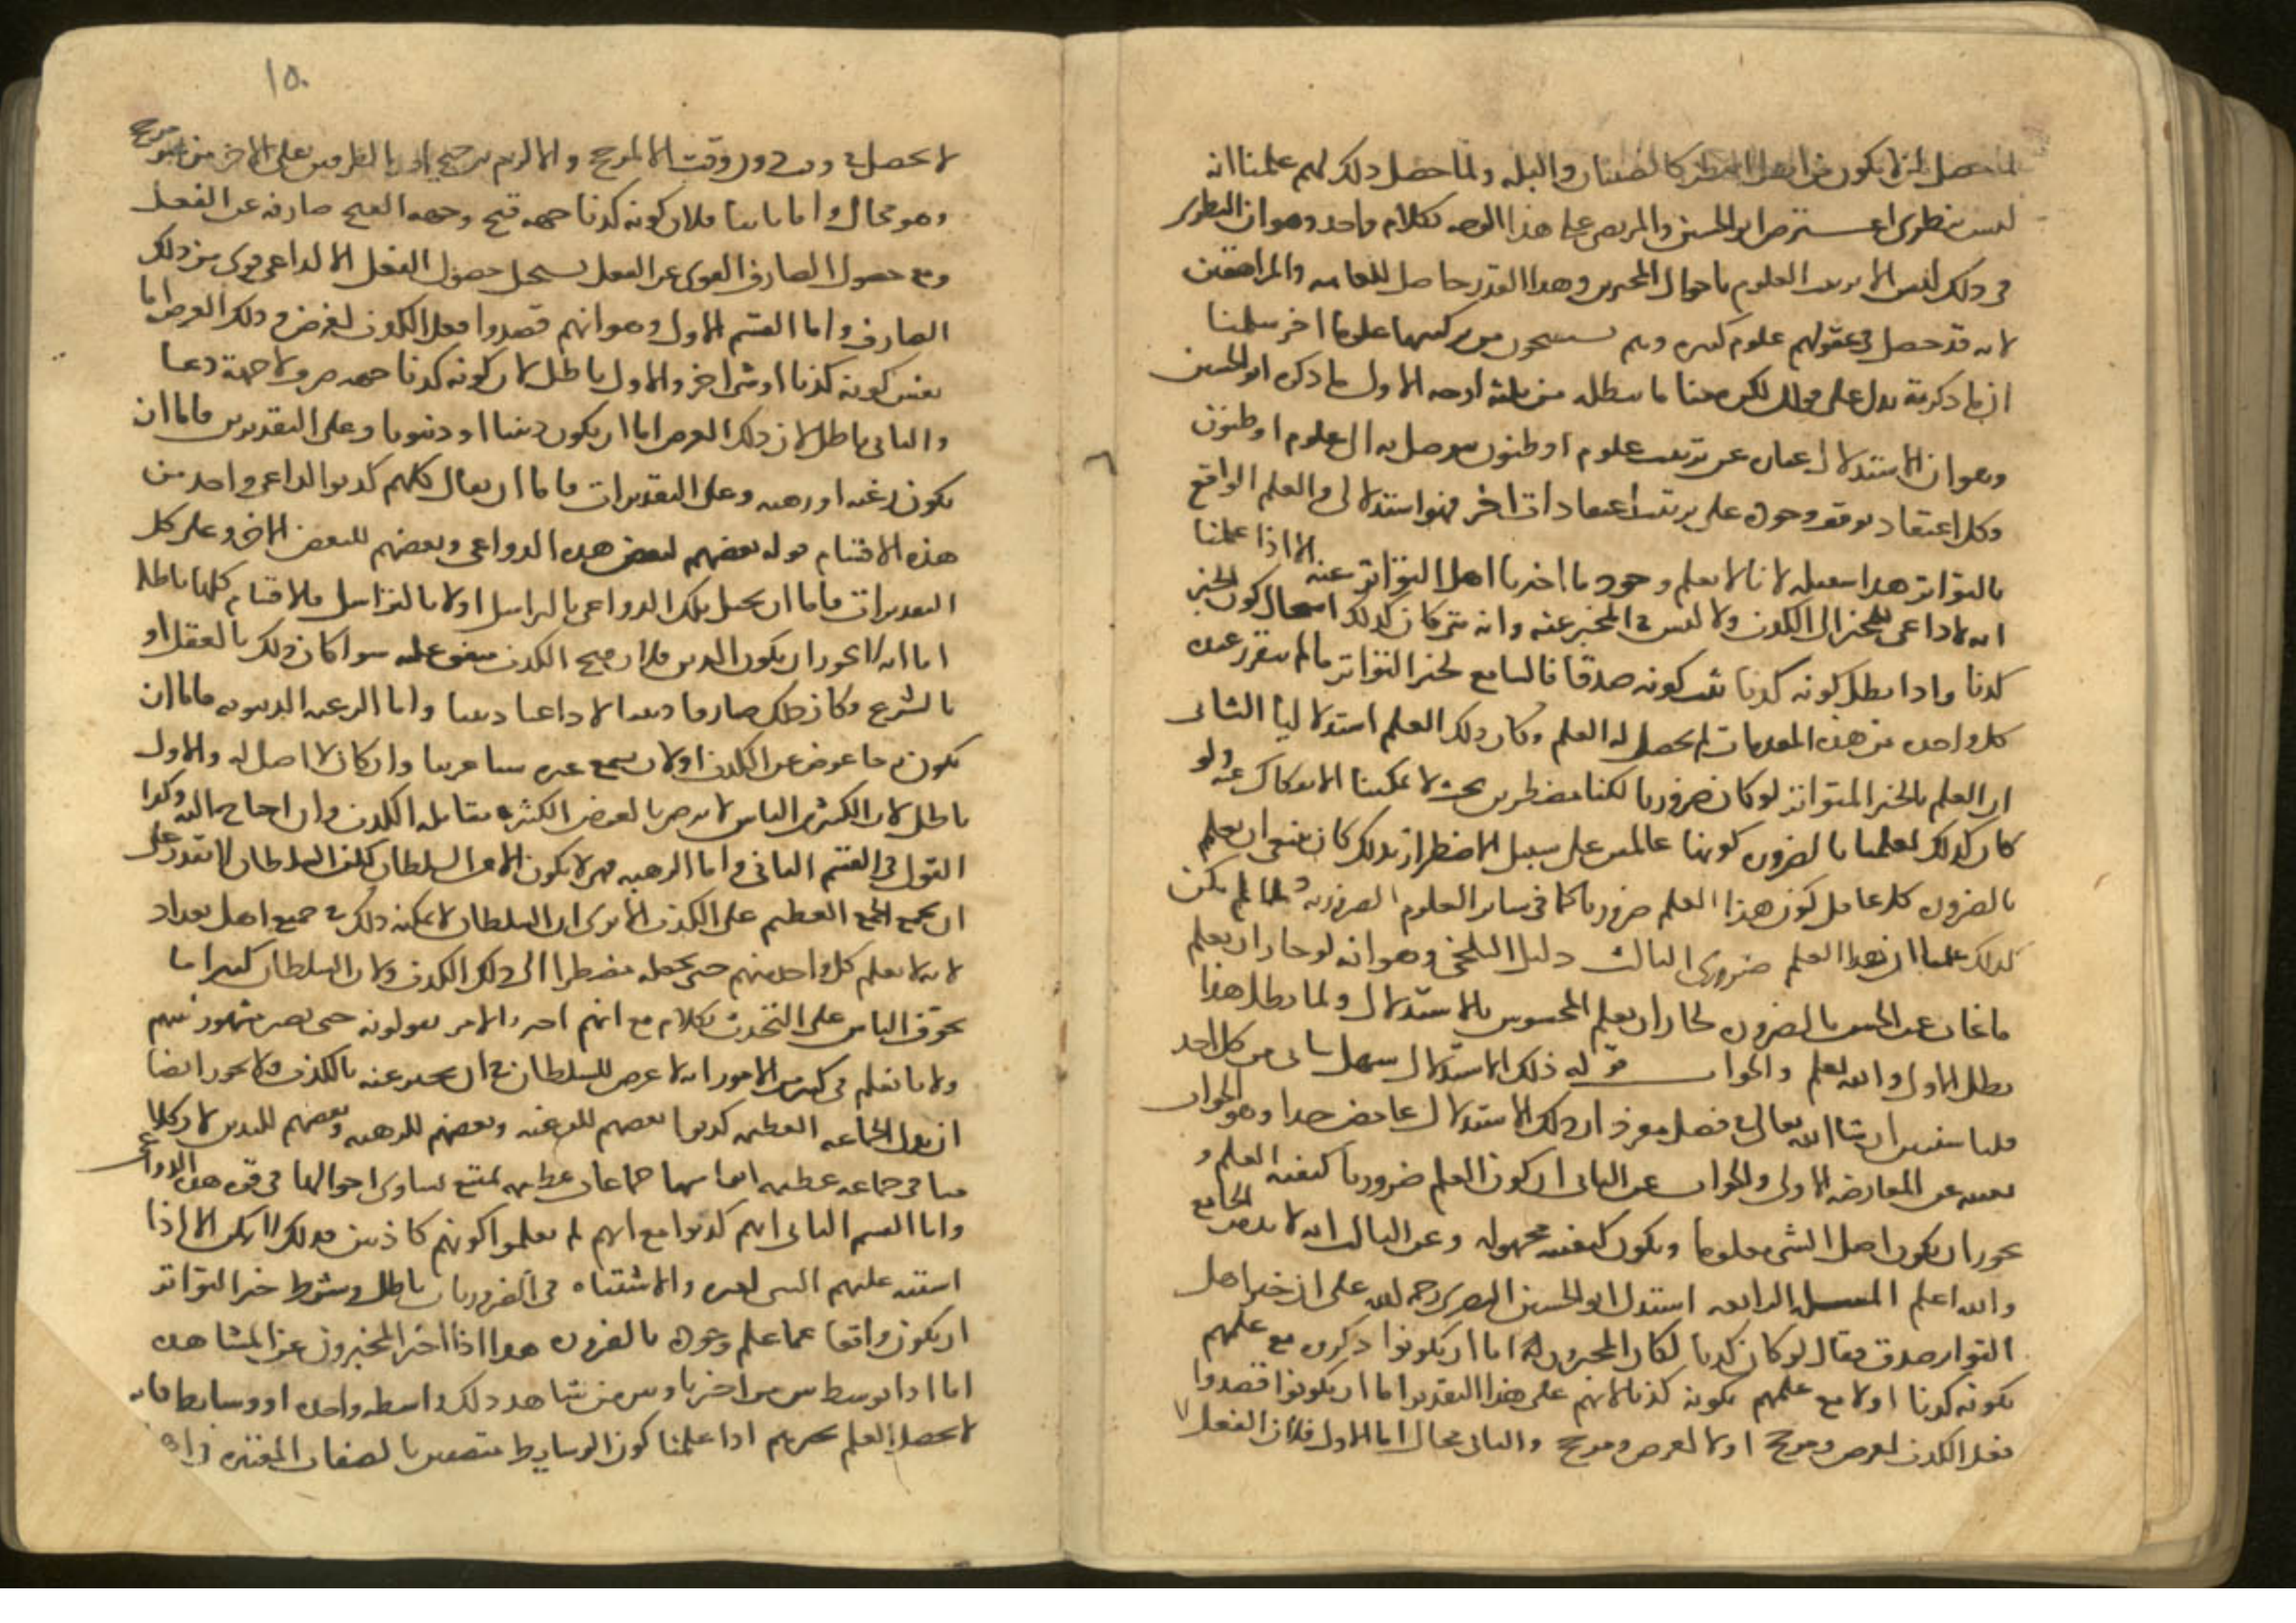 لما حصل لمن لا يكون من اهل النظر كالصبيان والبله ولما حصل ذلك لهم علمنا انه
ليس بنظري اعترض ابو الحسين والمرتضى على هذا الوجه بكلام واحد وهو ان النظر
في ذلك ليس الا ترتيب العلوم باحوال المخبرين وهذا القدر حاصل للعامة والمراهقين
لانه قد حصل في عقولهم علوم كثيرة وهم يستنتجون من تركيبها علوما اخر سلمنا
ان ما ذكرته يدل على قولك لكن معنا ما يبطله من ثلثة اوجه الاول ما ذكره ابو الحسين
وهو ان الاستدلال عبارة عن ترتيب علوم او ظنون يتوصل به الى علوم او ظنون
وكل اعتقاد توقف وجوده على ترتيب اعتقادات اخر فهو استدلالي والعلم الواقع
بالتواتر هذا سبيله لانا لا نعلم وجود ما اخبرنا اهل التواتر عنه الا اذا علمنا
انه لا داعي للمخبر الى الكذب ولا لبس في المخبر عنه وانه متى كان كذلك استحال كون الخبر
كذبا واذا بطل كونه كذبا ثبت كونه صدقا فالسامع لخبر التواتر ما لم يتقرر عنده
كل واحدة من هذه المقدمات لم يحصل له العلم وكان ذلك العلم استدلاليا الثاني
ان العلم بالخبر المتواتر لو كان ضروريا لكنا مضطرين بحيث لا يمكننا الانفكاك عنه ولو
كان كذلك لعلمنا بالضرورة كوننا عالمين على سبيل الاضطرار بذلك كان ينبغي ان يعلم
بالضرورة كل عاقل كون هذا العلم ضروريا كما في ساير العلوم الضرورية ولما لم يكن
كذلك علمنا ان هذا العلم ضروري الثالث دليل البلخي وهو انه لو جاز ان يعلم
ما غاب عن الحس بالضرورة لجاز ان يعلم المحسوس بالاستدلال ولما بطل هذا
بطل الاول والله يعلم والجواب قوله ذلك الاستدلال سهل يتاتى من كل احد
قلنا سنبين ان شا الله تعالى في فصل مفرد ان ذلك الاستدلال غامض جدا وهو الجواب
بعينه عن المعارضة الاولى والجواب عن الثاني ان كون العلم ضروريا كيفية العلم و
يجوز ان يكون اصل الشي معلوما ويكون كيفيته مجهولة وعن الثالث انه لا بد من الجامع
والله اعلم المسلة الرابعة استدل ابو الحسين البصري رحمه الله على ان خبر اهل
التواتر صدق فقال لو كان كذبا لكان المخبرون اما ان يكونوا ذكروه مع علمهم
بكونه كذبا او لا مع علمهم بكونه كذبا لانهم على هذا التقدير اما ان يكونوا قصدوا
فعل الكذب لغرض ومرجح او لا لغرض ومرجح والثاني محال اما الاول فلان الفعل لا
١٥٠
لا يحصل في وقت دون وقت الا لمرجح والا لزم ترجيح احد الطرفين على الاخر من غير مرجح
وهو محال واما ثانيا فلان كونه كذبا جهة قبح وجهة القبح صارفة عن الفعل
ومع حصول الصارف القوي عن الفعل يستحيل حصول الفعل الا لداعي اقوى من ذلك
الصارف واما القسم الاول وهو انهم قصدوا فعل الكذب لغرض وذلك الغرض اما
نفس كونه كذبا او شي اخر والاول باطل لان كونه كذبا جهة صرف لا جهة دعا
والثاني باطل لان ذلك الغرض اما ان يكون دينيا او دنيويا وعلى التقديرين فاما ان
يكون رغبة او رهبة وعلى التقديرات فاما ان يقال كلهم كذبوا لداعي واحد من
هذه الاقسام قوله بعضهم لبعض هذه الدواعي وبعضهم للبعض الاخر وعلى كل
التقديرات فاما ان يحصل تلك الدواعي بالتراسل او لا بالتراسل والاقسام كلها باطلة
اما انه لا يجوز ان يكون للدين فلان قبح الكذب متفق عليه سوا كان ذلك بالعقل او
بالشرع فكان ذلك صارفا دينيا لا داعيا دينيا واما الرغبة الدنيوية فاما ان
يكون رجا عوض عن الكذب او لان يسمع غيره شيا غريبا وان كان لا اصل له والاول
باطل لان الكثير من الناس لا يرضى بالعوض الكثير في مقابلة الكذب وان احتاج اليه وكذا
القول في القسم الثاني واما الرهبة فهي لا يكون الا من السلطان لكن السلطان لا يقدر على
ان يجمع الجمع العظيم على الكذب الا ترى ان السلطان لا يمكنه ذلك في جميع اهل بغداد
لانه لا يعلم كل واحد منهم حتى يجعله مضطرا الى ذلك الكذب ولان السلطان كثيرا ما
يخوف الناس على التحدث بكلام مع انهم اخر الامر يقولونه حتى يصير مشهورا فيهم
ولانا نعلم في كثير من الامور انه لا غرض للسلطان في ان يخبر عنه بالكذب ولا يجوز ايضا
ان يقال الجماعة العظيمة كذبوا بعضهم للرغبة وبعضهم للرهبة وبعضهم للتدين لان كلامنا
في جماعة عظيمة ابعاضها جماعات عظيمة يمتنع تساوي احوالها في قوة هذه الدواعي
واما القسم الثاني انهم كذبوا مع انهم لم يعلموا كونهم كاذبين فذلك لا يمكن الا اذا
اشتبه عليهم الشي بغيره والاشتباه في الضروريات باطل وشرط خبر التواتر
ان يكون واقعا عما علم وجوده بالضرورة هذا اذا اخبر المخبرون عن المشاهدة
اما اذا توسط بين من اخبرنا وبين من شاهد ذلك واسطة واحدة او وسايط فانه
لا يحصل العلم بخبرهم اذا علمنا كون الوسايط متصفين بالصفات المعتبرة